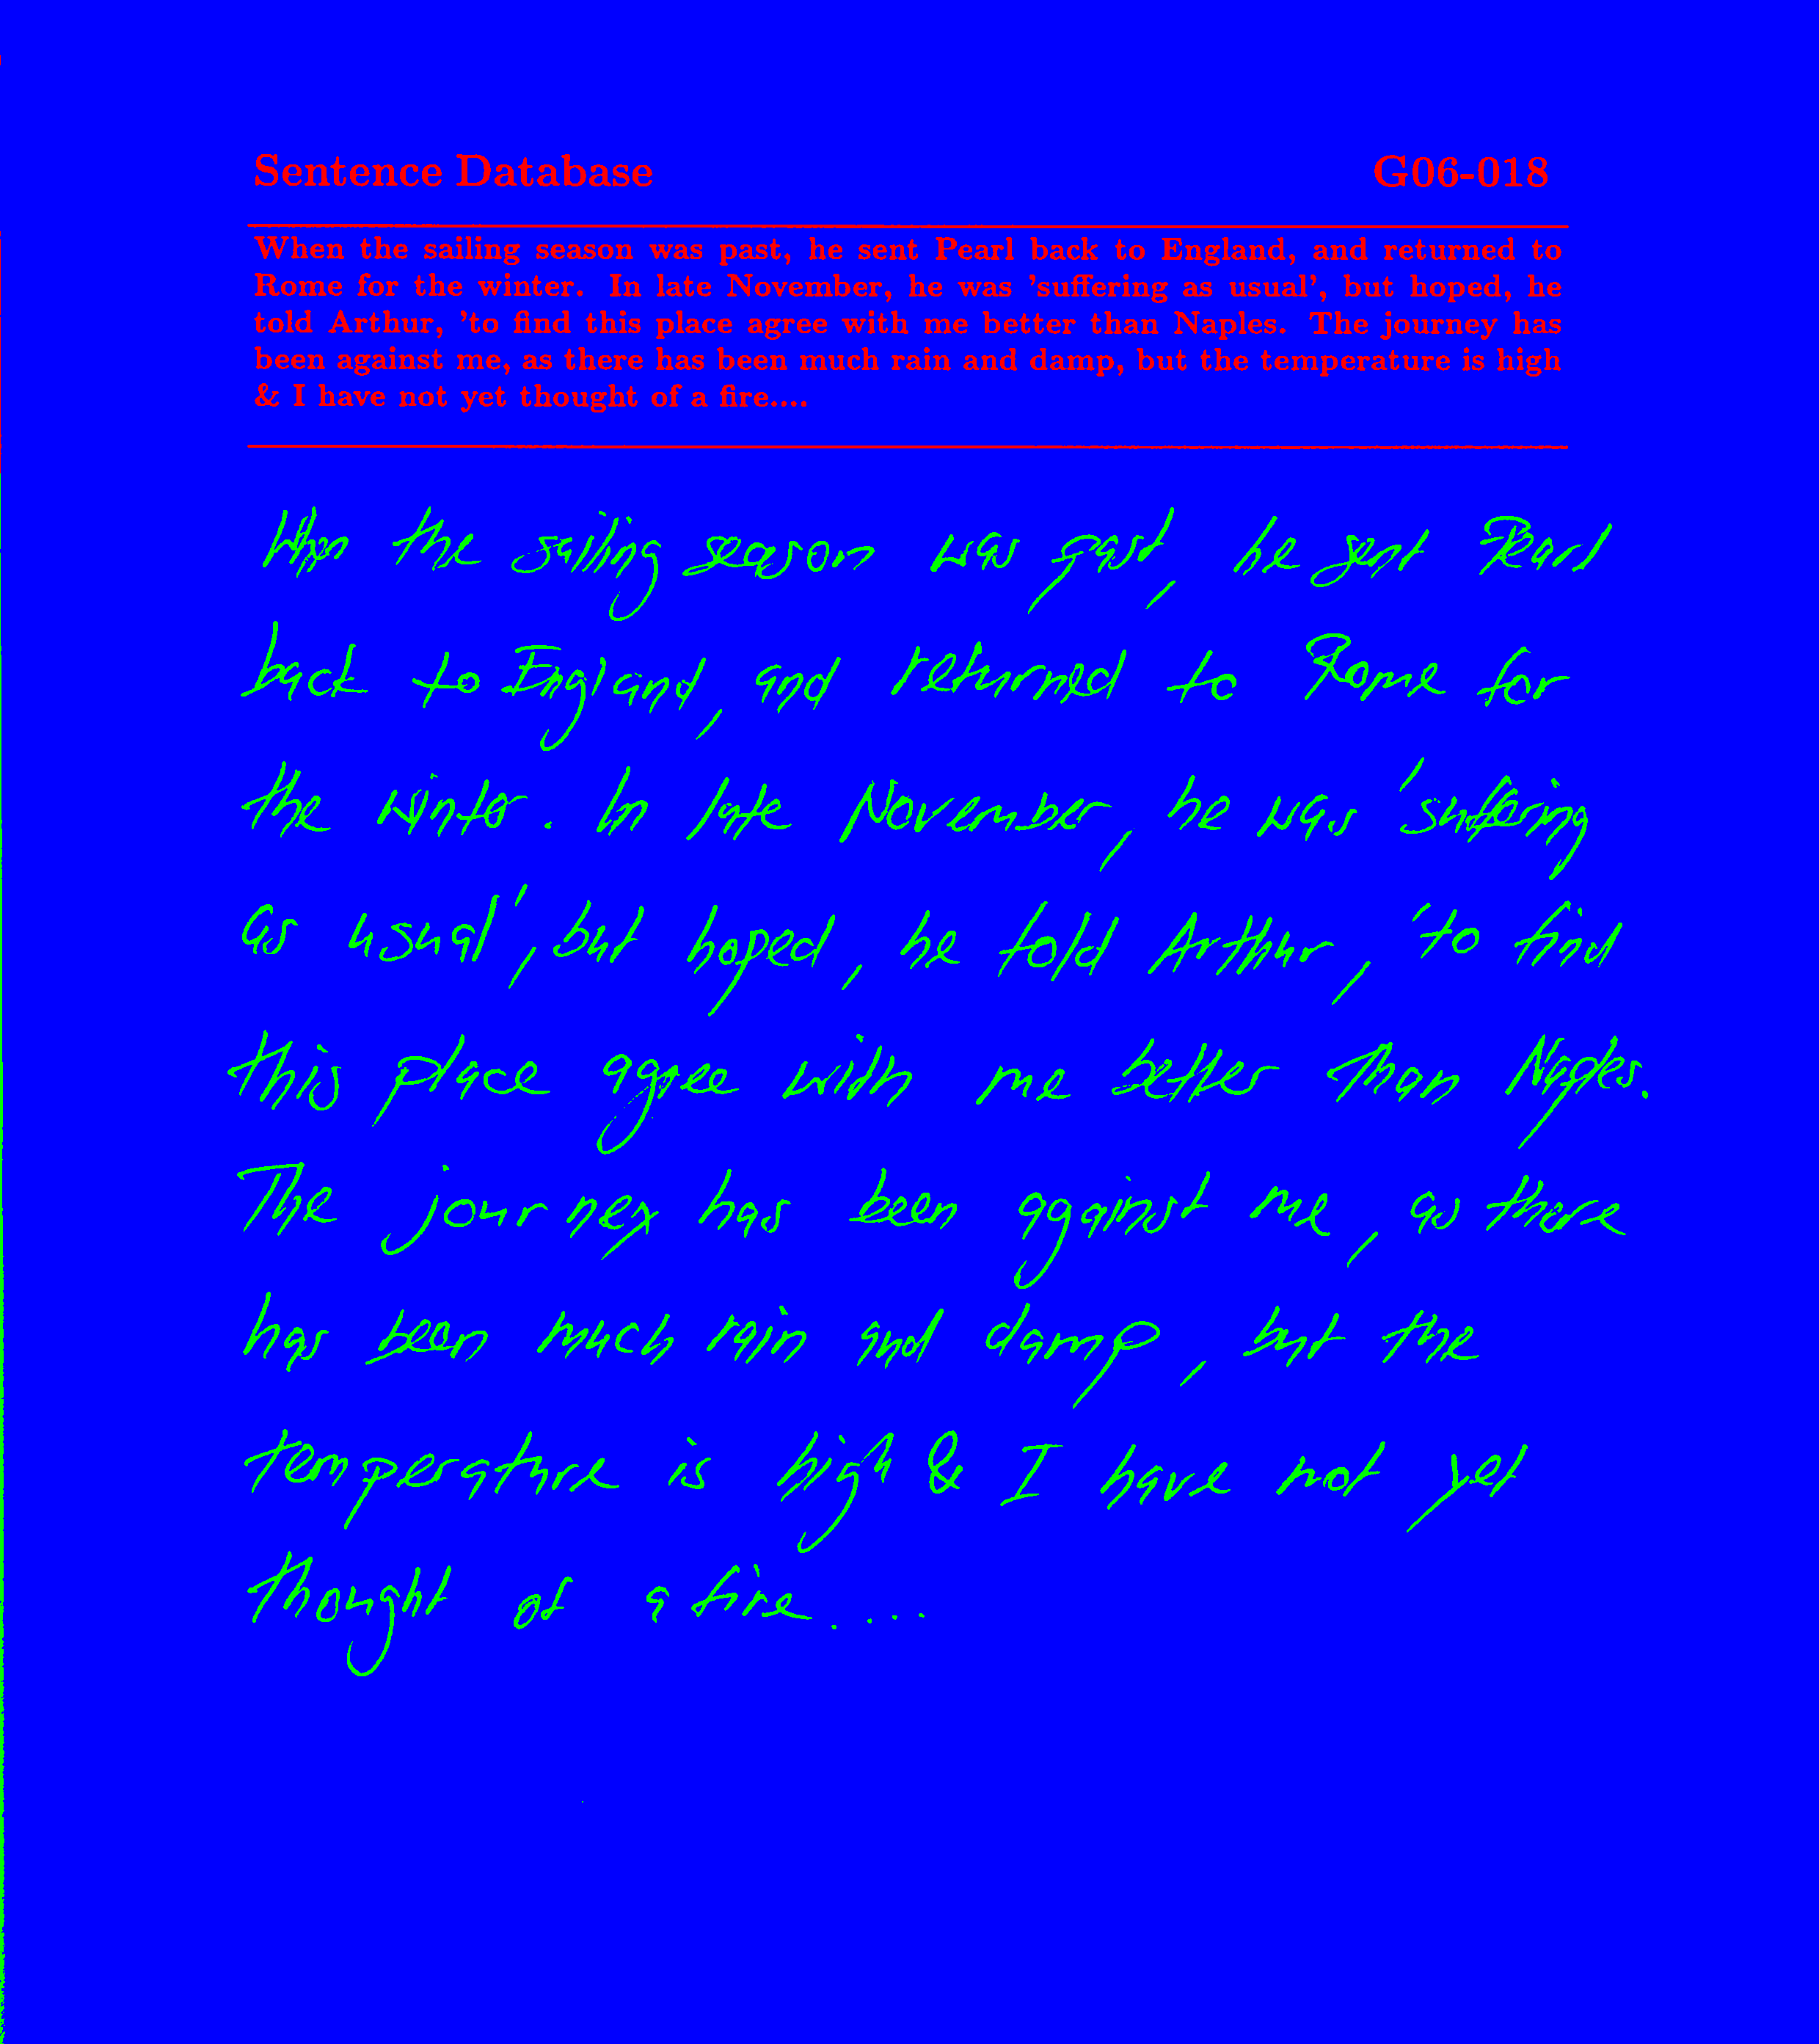 Sentence Database G06-018
When the sailing season was past, he sent Pearl back to England, and returned to
Rome for the winter. In late November, he was 'suffering as usual', but hoped, he
told Arthur, 'to find this place agree with me better than Naples. The journey has
been against me, as there has been much rain and damp, but the temperature is high
& I have not yet thought of a fire....
When the sailing season was past, he sent Pearl
back to England, and returned to Rome for
the winter. In late November, he was 'suffering
as usual', but hoped, he told Arthur, 'to find
this place agree with me better than Naples.
The journey has been against me, as there
has been much rain and damp, but the
temperature is high & I have not yet
thought of a fire....